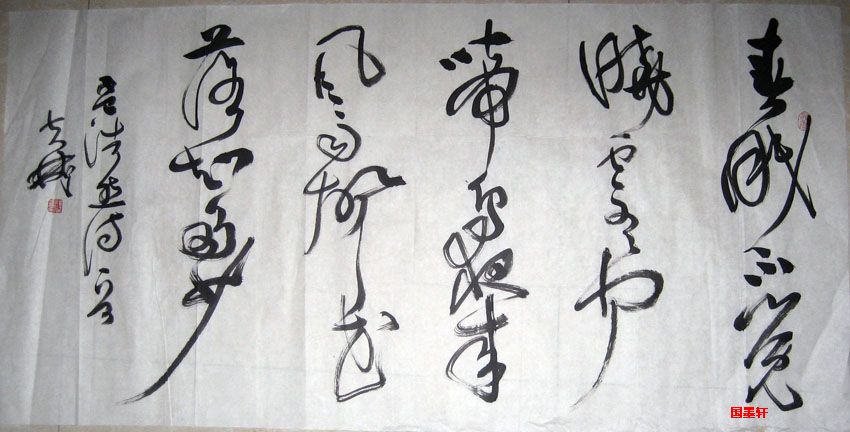 春眠不觉
晓处处闻
啼鸟夜来
风雨声花
落知多少
孟浩然诗
国墨轩